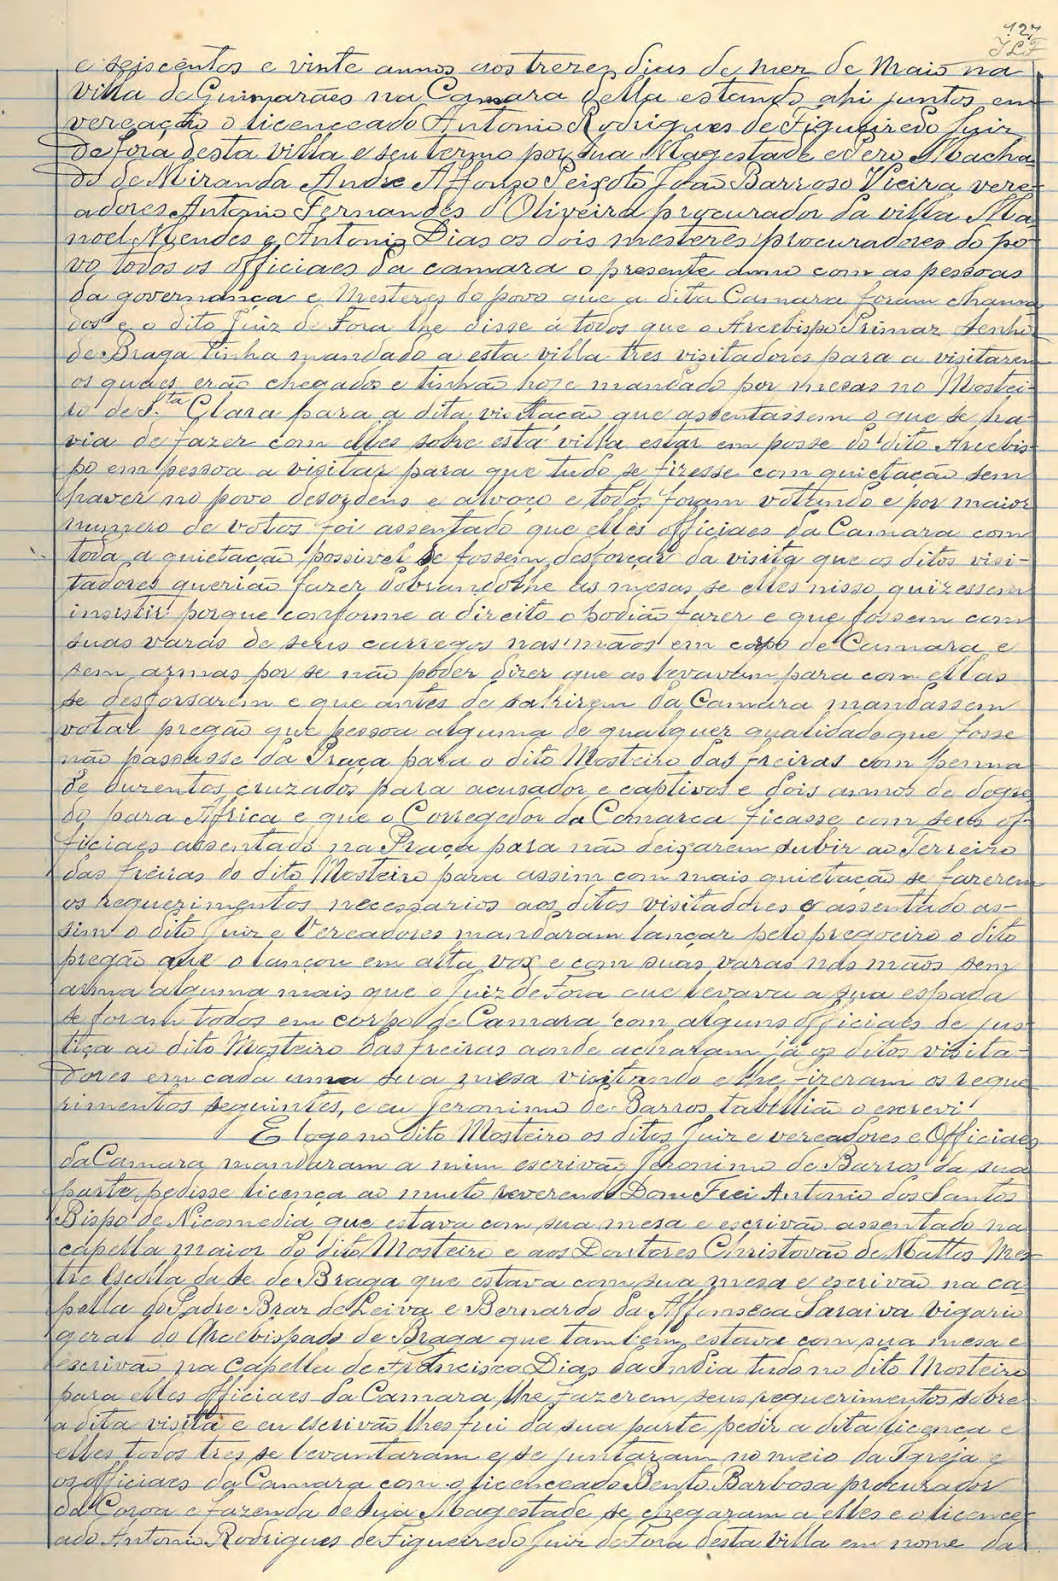 127
e seiscentos e vinte annos aos treze dias de mez de Maio na
villa de Guimarães na Camara della estando ahi juntos em
vereação o licenceado Antonio Rodrigues de Figueiredo Juiz
de fora desta villa e seu termo por sua Magestade e Pero Macha
do de Miranda Andre Affonso Peixoto João Barroso Vieira vere-
adores Antonio Fernandes d'Oliveira procurador da villa Ma
noel Mendes e Antonio Dias os dois mesteres procuradores do po
vo todos os officiaes da camara o presente anno com as pessoas
da governança e Mesteres do povo que a dita Camara foram chama
dos e o dito Juiz de Fora lhe disse a todos que o Arcebispo Primaz Senhor
de Braga tinha mandado a esta villa tres visitadores para a visitarem
os quaes erão chegados e tinhão hoje mandado por mezas no Mostei-
ro de S.ta Clara para a dita visitação que assentassem o que se ha-
via de fazer com elles sobre esta villa estar em posse do dito Arcebis-
po em pessoa a visitar para que tudo se fizesse com quietação sem
haver no povo desordens e alvoço e todos foram votando e por maior
numero de votos foi assentado que elles officiaes da Camara com
toda a quietação possivel se fossem desforçar da visita que os ditos visi-
tadores querião fazer dobrandolhe as mesas se elles nisso quizessem
insistir porque conforme a direito o podião fazer e que fossem com
suas varas de seus carregos nas mãos em corpo de Camara e
sem armas por se não poder dizer que as levavam para com ellas
se desforsarem e que antes de sahirem da Camara mandassem
votar pregão que pessoa alguma de qualquer qualidade que fosse
não passasse da Praça para o dito Mosteiro das freiras com penna
de duzentos cruzados para acusador e captivos e dois annos de degre
do para Africa e que o Corregedor da Comarca ficasse com seus of-
ficiaes assentado na Praça para não deixarem subir ao Terreiro
das freiras do dito Mosteiro para assim com mais quietação se fazerem
os requerimentos necessarios aos ditos visitadores e assentado as-
sim o dito Juiz e Vereadores mandaram lançar pelo pregoeiro o dito
pregão que o lançou em alta voz e com suas varas nas mãos sem
arma alguma mais que o Juiz de Fora que levava a sua espada
se foram todos em corpo de Camara com alguns officiaes de jus
tiça ao dito Mosteiro das freiras aonde acharam já os ditos visita-
dores em cada uma sua mesa visitando e lhe fizeram os reque
rimentos seguintes, e eu Jeronimo de Barros tabellião o escrevi
E logo no dito Mosteiro os ditos Juiz e vereadores e Officiaes
da Camara mandaram a mim escrivão Jeronimo de Barros da sua
parte pedisse licença ao muito reverendo Dom Frei Antonio dos Santos
Bispo de Nicomedia que estava com sua mesa e escrivão assentado na
capella maior do dito Mosteiro e aos Doutores Christovão de Mattos Mes-
tre Escolla da Se de Braga que estava com sua mesa e escrivão na ca
pella do Padre Braz de Leiva e Bernardo da Affonseca Saraiva vigario
geral do Arcebispado de Braga que tambem estava com sua mesa e
escrivão na Capella de Francisco Dias da India tudo no dito Mosteiro
para elles officiaes da Camara lhe fazerem seus requerimentos sobre
a dita visita e eu escrivão lhes fui da sua parte pedir a dita licença e
elles todos tres se levantaram e se juntaram no meio da Igreja e
os officiaes da Camara com o licenceado Bento Barbosa procurador
da Coroa e fazenda de sua Magestade se chegaram a elles e o licence-
ado Antonio Rodrigues de Figueiredo Juiz de Fora desta villa em nome da